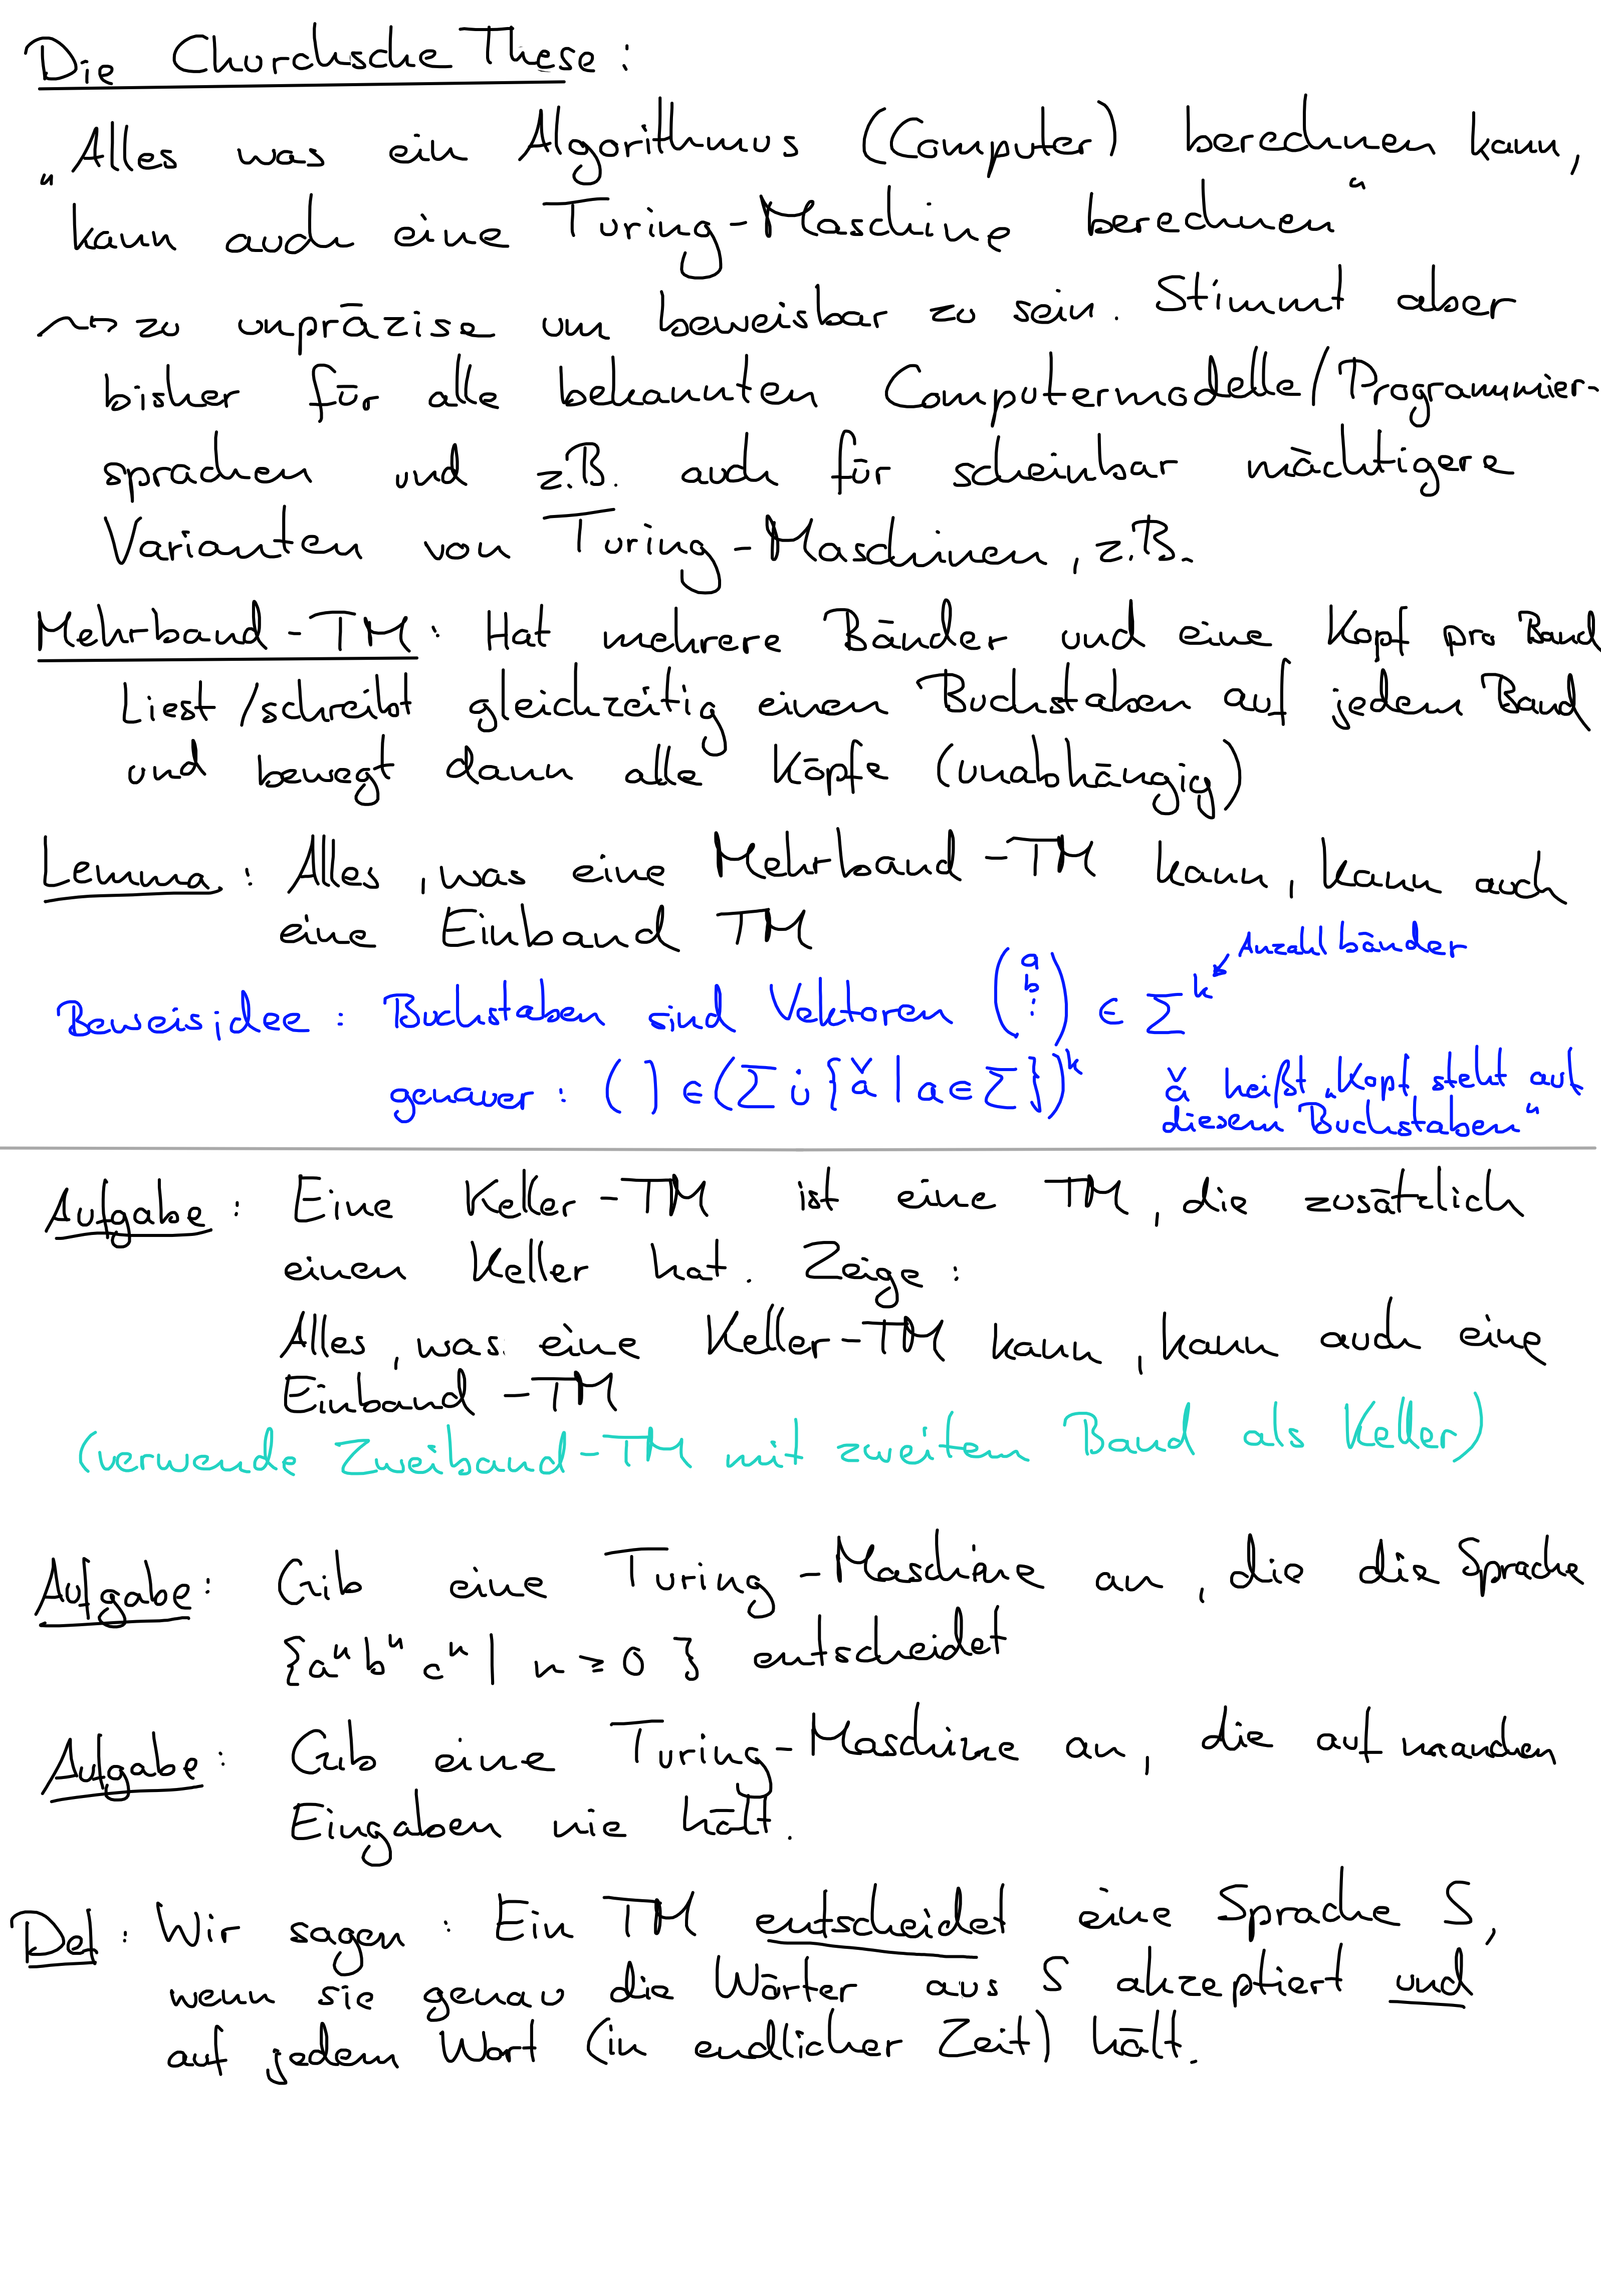 Die Churchsche These:
„Alles was ein Algorithmus (Computer) berechnen kann,
kann auch eine Turing-Maschine berechnen“
⇝ zu unpräzise um beweisbar zu sein. Stimmt aber
bisher für alle bekannten Computermodelle/Programmier-
sprachen und z.B. auch für scheinbar mächtigere
Varianten von Turing-Maschinen, z.B.
Mehrband-TM: Hat mehrere Bänder und eine Kopf pro Band
Liest/schreibt gleichzeitig einen Buchstaben auf jedem Band
und bewegt dann alle Köpfe (unabhängig)
Lemma: Alles, was eine Mehrband-TM kann, kann auch
eine Einband TM
Anzahl bänder
Beweisidee: Buchstaben sind Vektoren (a b ⋮) ∈ Σ^k
genauer: ( ) ∈ (Σ ∪̇ {ǎ | a ∈ Σ})^k ǎ heißt „Kopf steht auf
diesem Buchstaben“
Aufgabe: Eine Keller-TM ist eine TM, die zusätzlich
einen Keller hat. Zeige:
Alles, was eine Keller-TM kann, kann auch eine
Einband-TM
(verwende Zweiband-TM mit zweitem Band als Keller)
Aufgabe: Gib eine Turing-Maschine an, die die Sprache
{aⁿbⁿcⁿ | n ≥ 0} entscheidet
Aufgabe: Gib eine Turing-Maschine an, die auf manchen
Eingaben nie hält.
Def: Wir sagen: Ein TM entscheidet eine Sprache S,
wenn sie genau die Wörter aus S akzeptiert und
auf jedem Wort (in endlicher Zeit) hält.